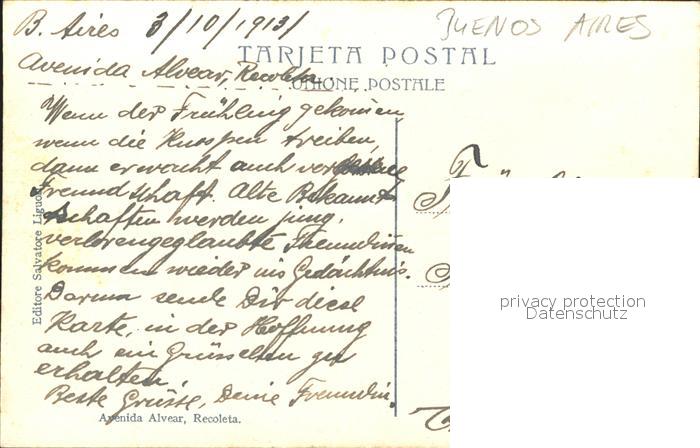 B. Aires 3/10/1913/
BUENOS AIRES
TARJETA POSTAL
Avenida Alvear, Recoleta
UNIONE POSTALE
Wenn der Frühling gekommen
wenn die Knospen treiben,
dann erwacht auch
Freundschaft. Alte Bekannt-
schaften werden jung,
verlorengeglaubte Freundinnen
kommen wieder ins Gedächtnis.
Darum sende Dir diese
Karte, in der Hoffnung
auch ein Grüsschen zu
erhalten.
Beste Grüsse, Deine Freundin.
Editore Salvatore Liguo
Avenida Alvear, Recoleta.
privacy protection
Datenschutz